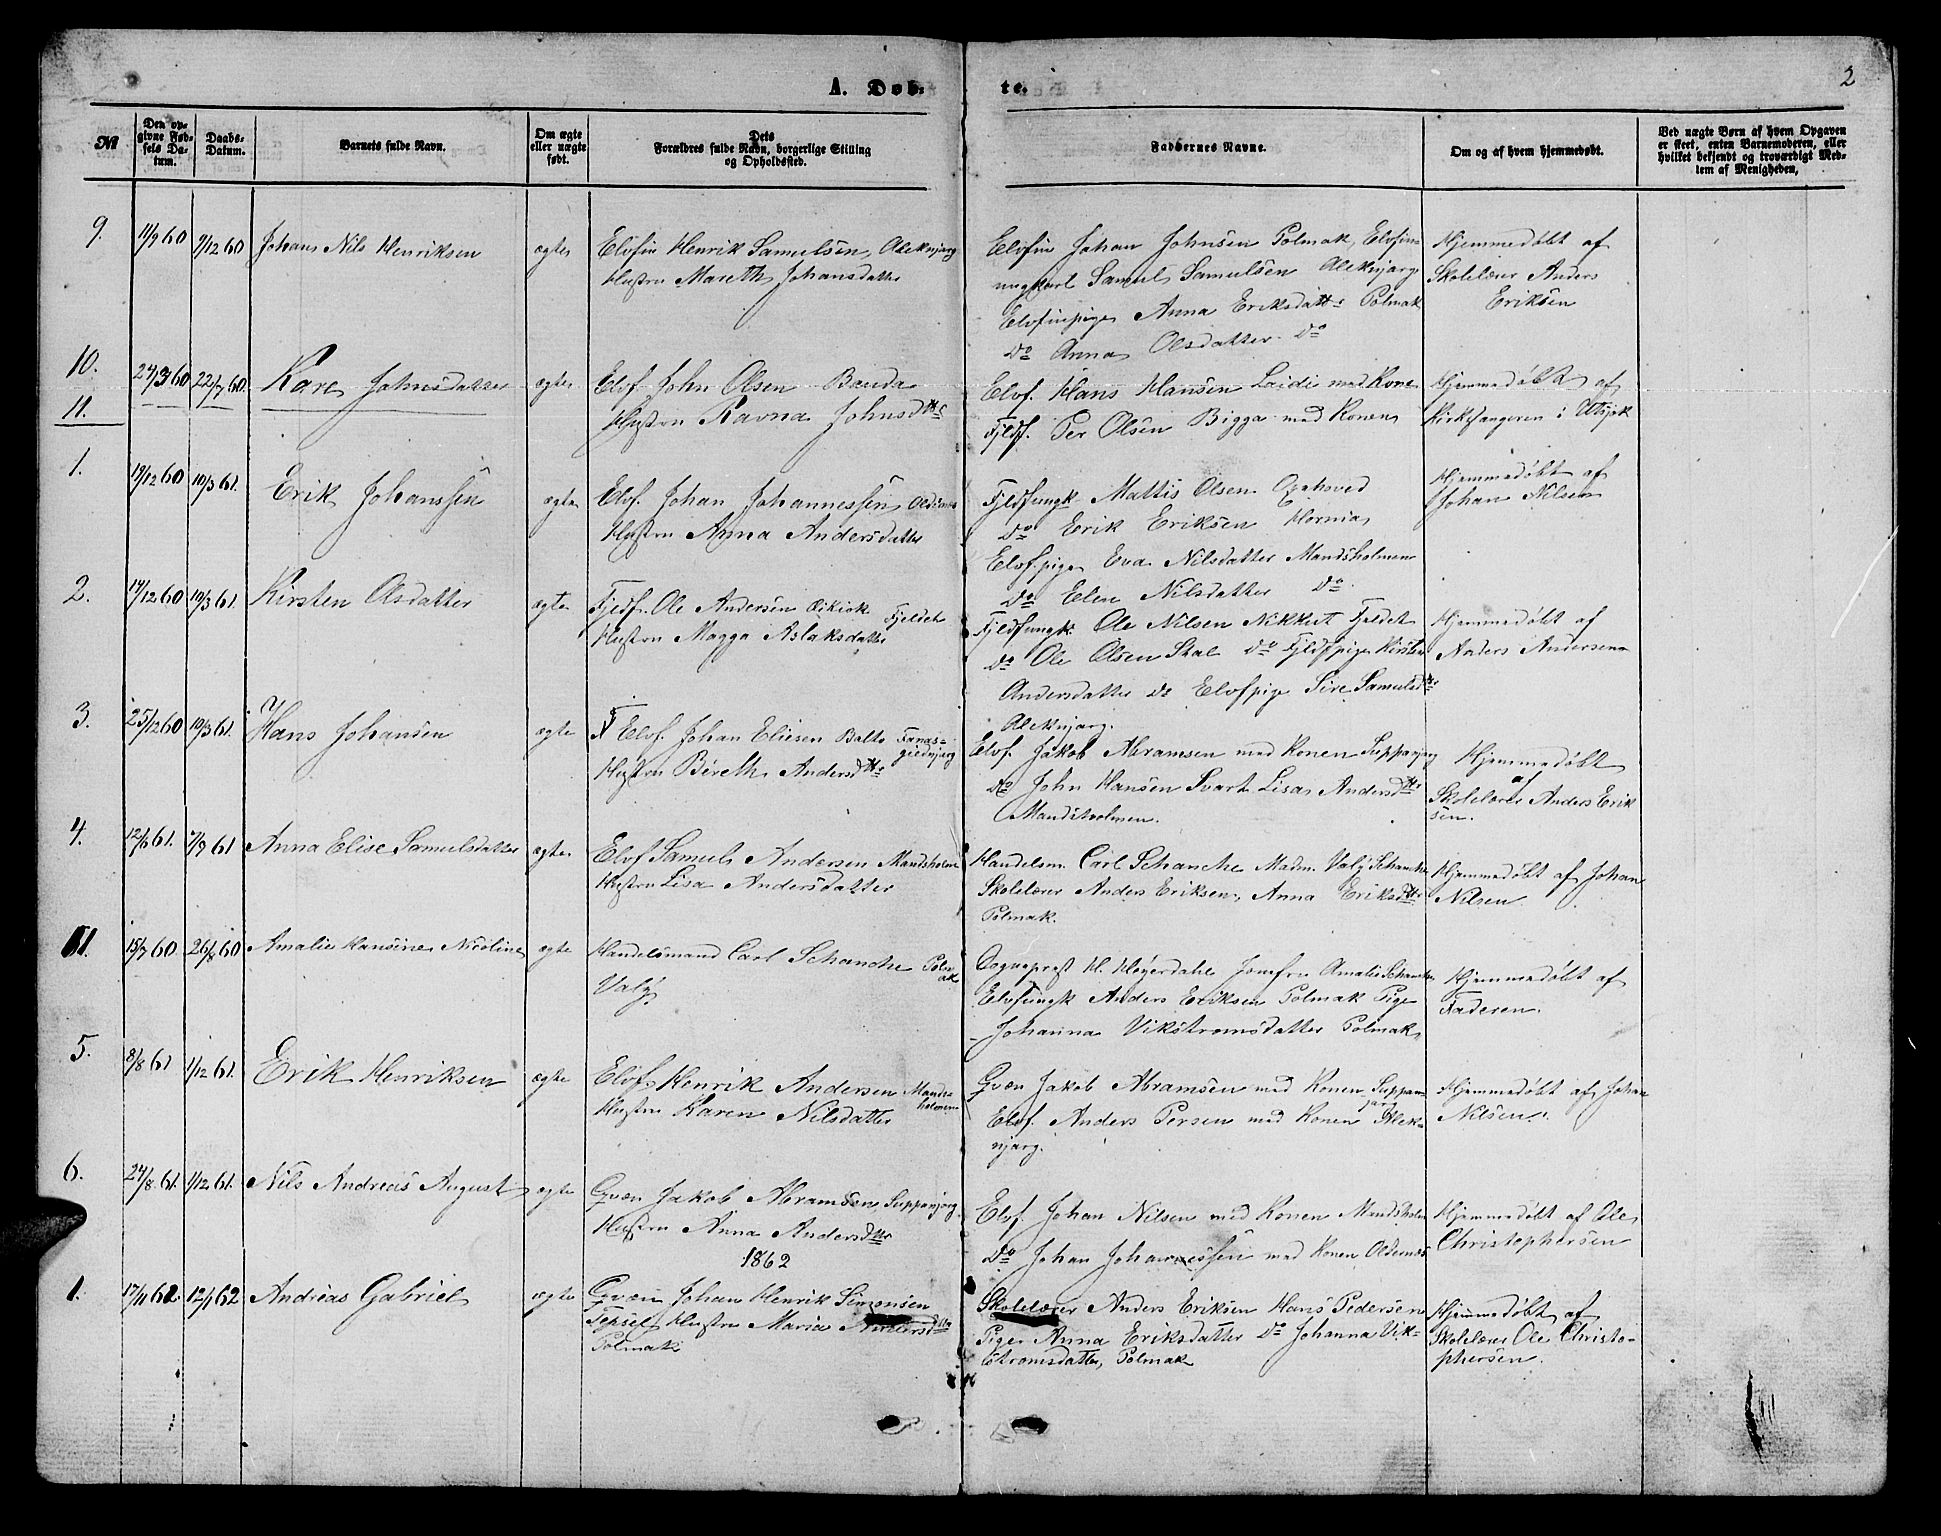 2
A. Døb- te.
№
Den op-
givne Fød-
sels Da-
tum.
Daabs-
Datum.
Barnets fulde Navn.
Om ægte
eller uægte
født.
Dets
Forældres fulde Navn, borgerlige Stilling
og Opholdssted.
Faddernes Navne.
Om og af hvem hjemmedøbt.
Ved uægte Børn af hvem Opgaven
er skeet, enten Barnemoderen, eller
hvilket bekjendt og troværdigt Med-
lem af Menigheden,
9. 11/9 60 9/12 60 Johan Nils Henriksen ægte
Elvfin Henrik Samulsen, Aleknjarg
Hustru Mareth Johansdatter
Elvfin Johan Johnsen Polmak, Elvfin-
ungkarl Samul Samulsen Aleknjarg
Elvfinpige Anna Eriksdattr Polmak
Do Anna Olsdatter Do
Hjemmedøbt af
Skolelærer Anders
Eriksen
10. 24/3 60 22/7 60. Kare Johnsdatter ægte
11.
Elvf. John Olsen Banda
Hustru Ravna Johnsdtr
Elvf. Hans Hansen Laidi med Kone
Fjldf. Per Olsen Bigga med Konen
Hjemmedøbt af
Kirkesangeren i Utsjok
1. 19/12 60 10/3 61. Erik Johanssen ægte
Elvf. Johan Johannessen Oldernes
Hustru Anna Andersdatter
Fjldfungk Mattis Olsen
Do Erik Eriksen Hornia
Elvf.pige Eva Nilsdatter Mandsholmen
Do Elen Nilsdatter Do
Hjemmedøbt af
Johan Nilsen
2. 14/12 60 10/3 61. Kirsten Olsdatter ægte
Fjldf. Ole Andersen Fjeldet
Hustru Magga Aslaksdatter
Fjldfungk Ole Nilsen Nikkut Fjeldet
Do Ole Olsen Skal Do Fjldfpige Kirsten
Andersdatter Do Elvfpige Sire Samulsdtr
Aleknjarg.
Hjemmedøbt af
Anders Andersen
3. 25/12 60 10/3 61. Hans Johansen ægte
Elvf. Johan Eliesen Balto Fanas-
giednjarg
Hustru Bereth Andersdtr
Elvf. Jakob Abramsen med Konen Suppanjarg
Do John Hansen Svart Lisa Andersdtr
Mandsholmen.
Hjemmedøbt
af
Skolelærer Anders Erik
sen.
4. 12/6 61. 7/9 61 Anna Elise Samulsdatter ægte
Elvf Samuel Andersen Mandsholm
Hustru Lisa Andersdatter
Handelsm. Carl Schanche Madm. Valy Schanche
Skolelærer Anders Eriksen, Anna Eriksdtr
Polmak.
Hjemmedøbt af Johan
Nilsen
11. 15/7 60 26/8 60 Amalie Hansine Nicoline ægte
Handelsmand Carl Schanche Polm
ak
Valy
Sogneprest H. Heyerdahl Jomfru Amalie Schanche
Elvfungk Anders Eriksen Polmak Pige
Johanna Vikstromsdatter Polmak
Hjemmedøbt af
Faderen.
5. 8/8 61 1/12 61. Erik Henriksen ægte
Elvf. Henrik Andersen Mands
holmen
Hustru Karen Nilsdatter
Qvæn Jakob Abramsen med Konen Suppan-
jarg
Elvf. Anders Persen med Konen Alek-
njarg.
Hjemmedøbt af Johan
Nilsen.
6. 24/8 61. 1/12 61. Nils Andreas August ægte
Qvæn Jakob Abramsen Suppanjarg
Hustru Anna Andersdtr
Elvf. Johan Nilsen med Konen Mandsholm
Do Johan Johannessen med Konen Oldernes
Hjemmedøbt af Ole
Christophersen
1862
1. 17/11 61 12/1 62 Andreas Gabriel ægte
Qvæn Johan Henrik Simonsen
Tepsel Hustru Maria Andersdtr
Polmak
Skolelærer Anders Eriksen Hans Pedersen
Pige Anna Eriksdatter Do Johanna Vik-
stromsdatter, Polmak
Hjemmedøbt af
Skolelærer Ole Christo-
phersen.